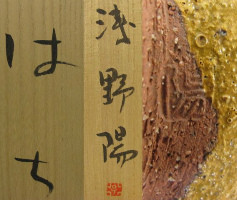 はち
浅野陽